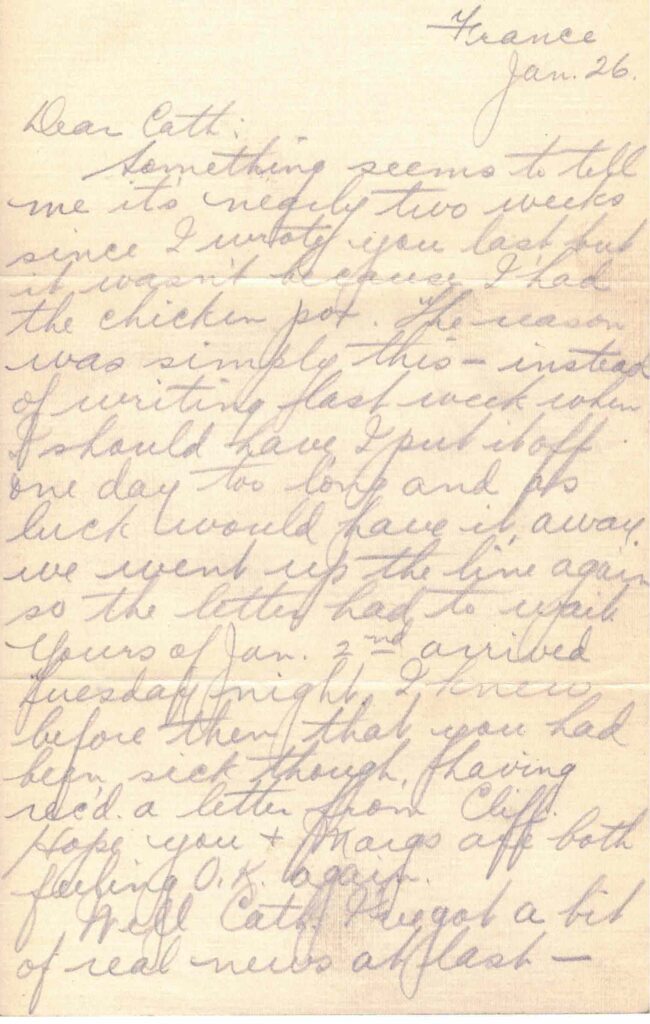 France
Jan. 26.
Dear Cath:
Something seems to tell
me it's nearly two weeks
since I wrote you last but
it wasn't because I had
the chicken pox. The reason
was simply this — instead
of writing last week when
I should have I put it off
one day too long and as
luck would have it away
we went up the line again
so the letter had to wait
Yours of Jan. 2nd arrived
Tuesday night. I knew
before then that you had
been sick though, having
rec'd. a letter from Cliff.
Hope you + Margs are both
feeling O.K. again.
Well Cath. I've got a bit
of real news at last —